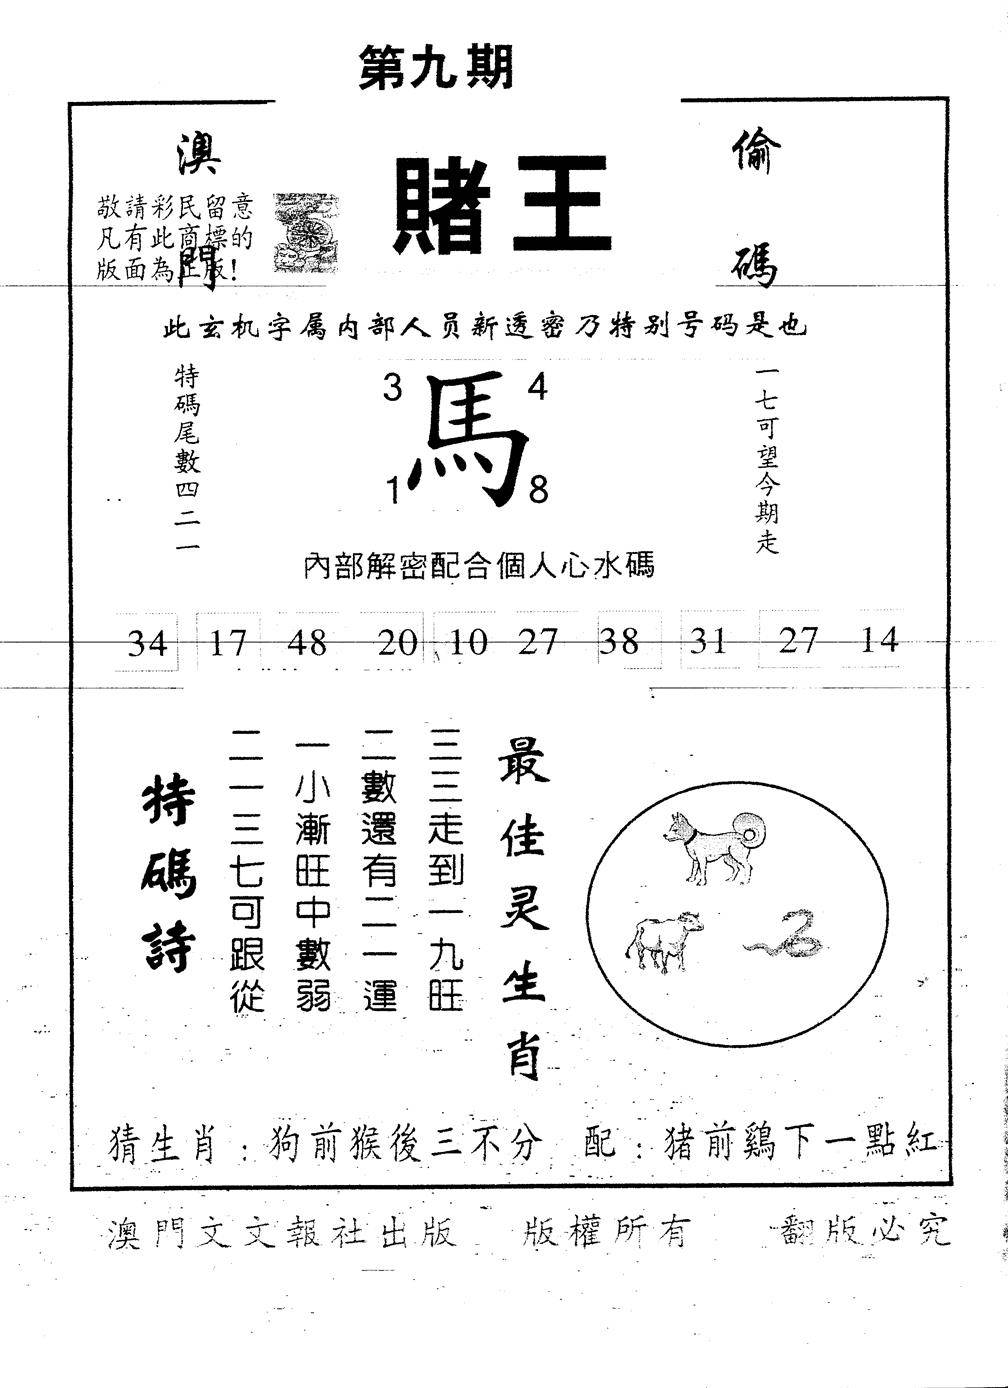 第九期
澳門
賭王
偷碼
敬請彩民留意
凡有此商標的
版面為正版!
此玄机字属内部人员新透密乃特别号码是也
特碼尾數四二一
3 4
馬
1 8
一七可望今期走
內部解密配合個人心水碼
34 17 48 20 10 27 38 31 27 14
最佳灵生肖
三三走到一九旺
二數還有二一運
一小漸旺中數弱
二一三七可跟從
特碼詩
猜生肖:狗前猴後三不分 配:猪前鷄下一點紅
澳門文文報社出版 版權所有 翻版必究